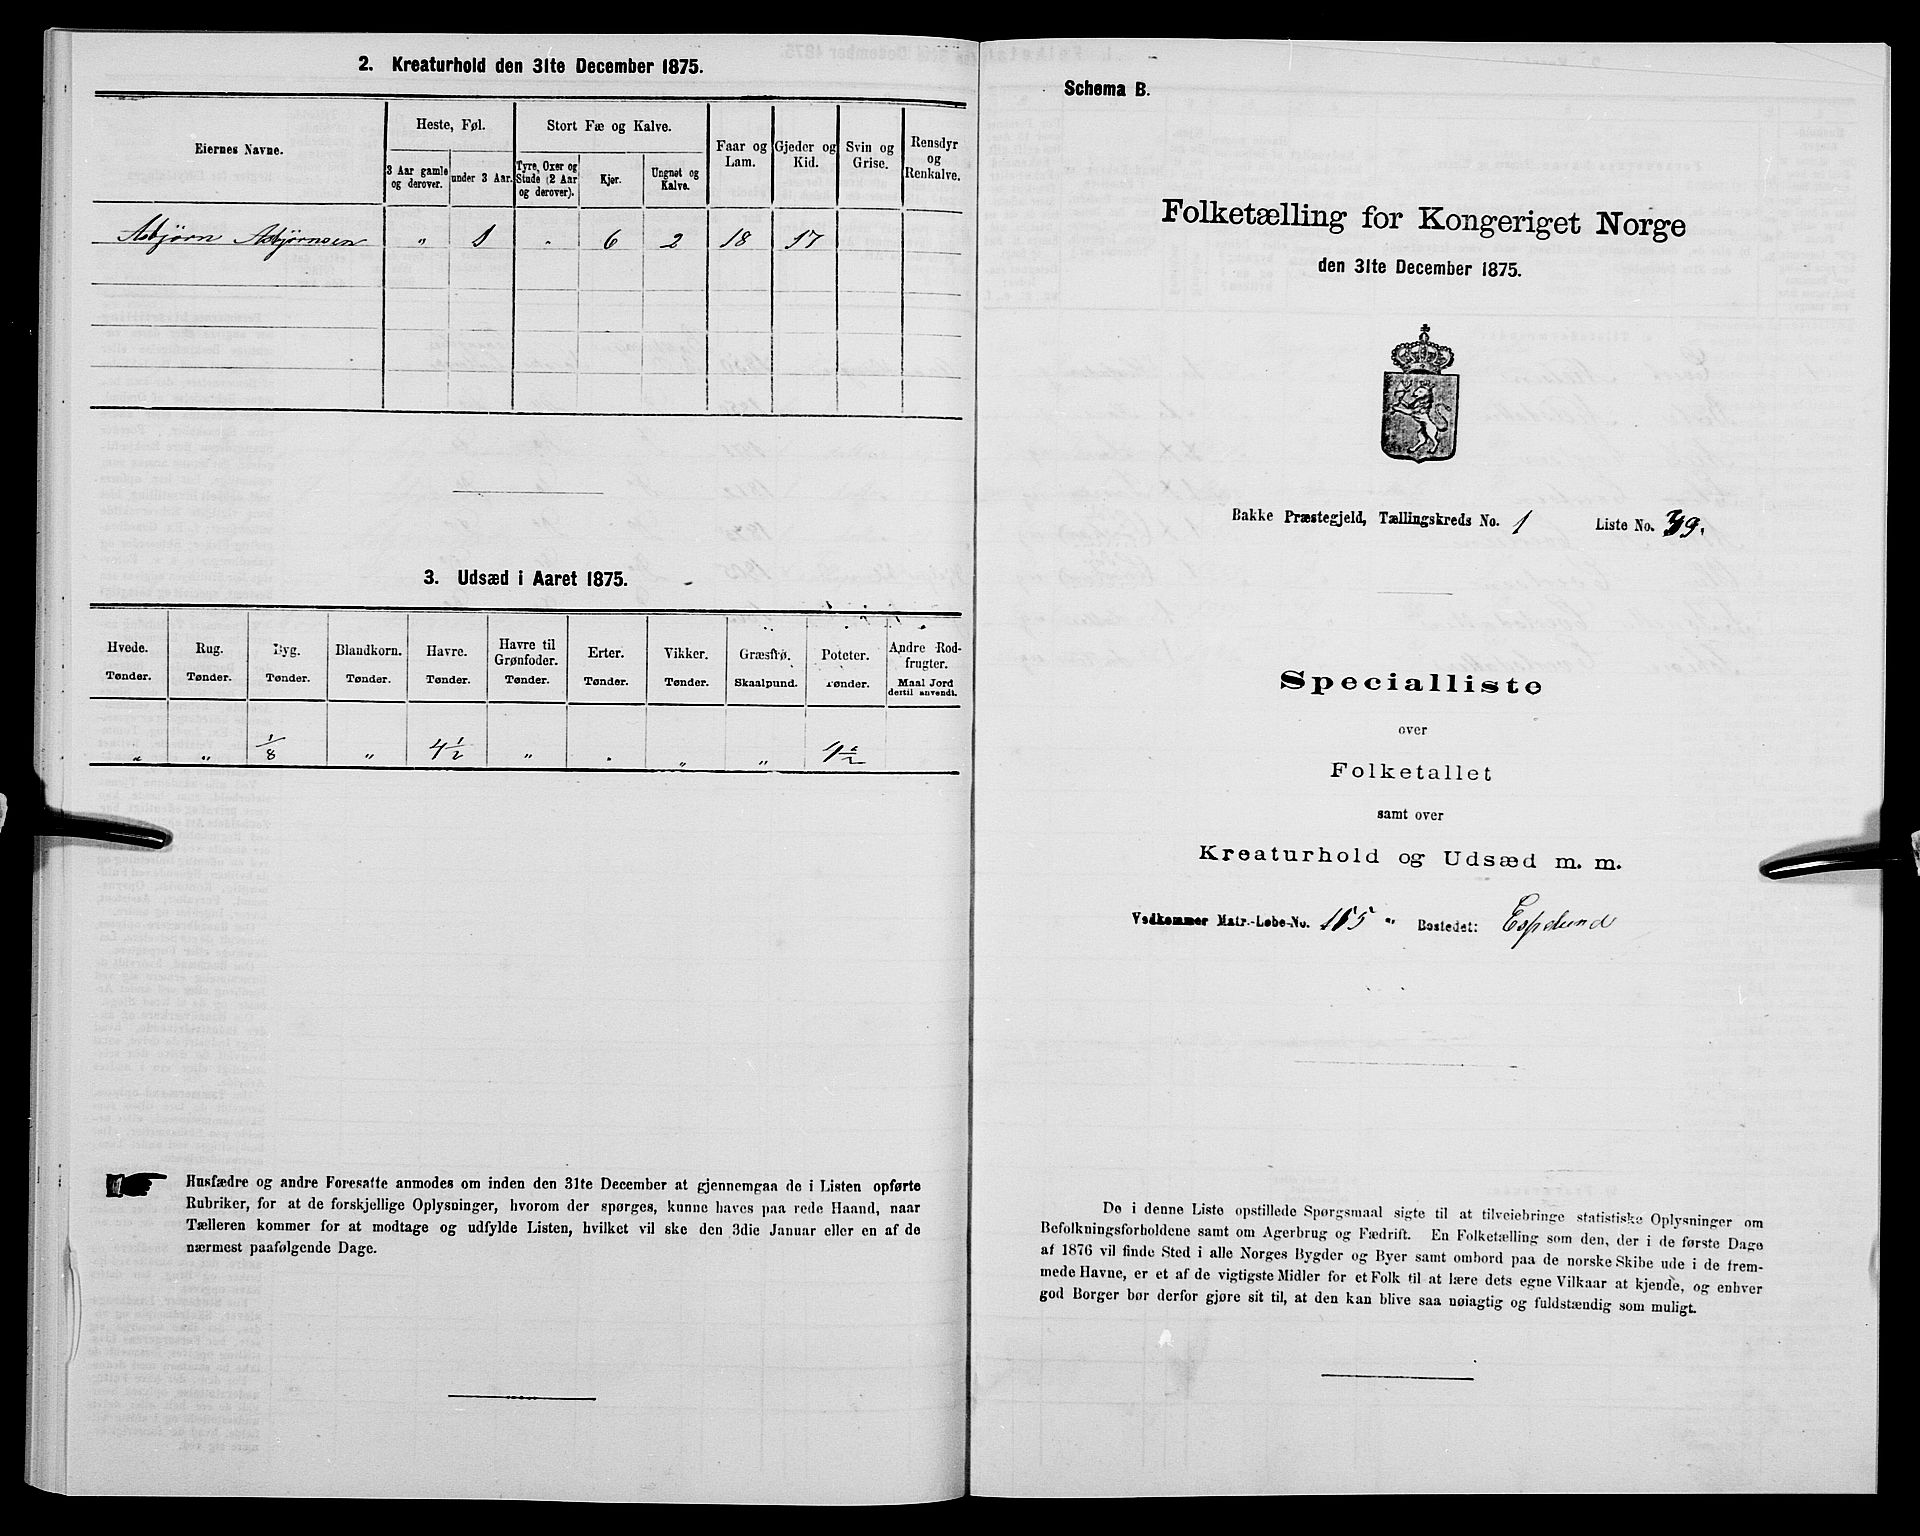 2. Kreaturhold den 31te December 1875.
Eiernes Navne.
Heste, Føl.
Stort Fæ og Kalve.
Faar og Lam.
Gjeder og Kid.
Svin og Grise.
Rensdyr og Renkalve.
3 Aar gamle og derover.
under 3 Aar.
Tyre, Oxer og Stude (2 Aar og derover).
Kjør.
Ungnøt og Kalve.
Asbjørn Asbjørnsen " 1 " 6 2 18 17
3. Udsæd i Aaret 1875.
Hvede. Rug. Byg. Blandkorn. Havre. Havre til Grønfoder. Erter. Vikker. Græsfrø. Poteter. Andre Rodfrugter.
Tønder. Tønder. Tønder. Tønder. Tønder. Tønder. Tønder. Tønder. Skaalpund. Tønder. Maal Jord dertil anvendt.
" " 1/8 " 4 1/2 " " " "
Husfædre og andre Foresatte anmodes om inden den 31te December at gjennemgaa de i Listen opførte
Rubriker, for at de forskjellige Oplysninger, hvorom der spørges, kunne haves paa rede Haand, naar
Tælleren kommer for at modtage og udfylde Listen, hvilket vil ske den 3die Januar eller en af de
nærmest paafølgende Dage.
Schema B.
Folketælling for Kongeriget Norge
den 31te December 1875.
Bakke Præstegjeld, Tællingskreds No. 1 Liste No. 39.
Specialliste
over
Folketallet
samt over
Kreaturhold og Udsæd m. m.
Vedkommer Matr.-Løbe-No. 165 " Bostedet: Espelund
De i denne Liste opstillede Spørgsmaal sigte til at tilveiebringe statistiske Oplysninger om
Befolkningsforholdene samt om Agerbrug og Fædrift. En Folketælling som den, der i de første Dage
af 1876 vil finde Sted i alle Norges Bygder og Byer samt ombord paa de norske Skibe ude i de frem-
mede Havne, er et af de vigtigste Midler for et Folk til at lære dets egne Vilkaar at kjende, og enhver
god Borger bør derfor gjøre sit til, at den kan blive saa nøiagtig og fuldstændig som muligt.